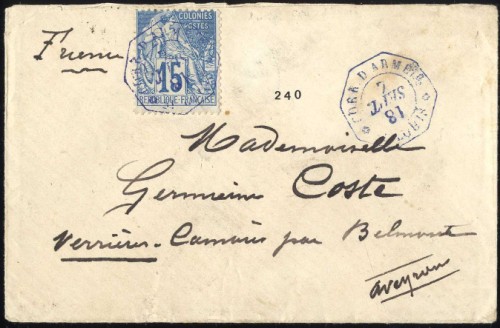 France
COLONIES
POSTES
15
REPUBLIQUE FRANÇAISE
240
CORR. D'ARMÉES
7
SEPT
18
Mademoiselle
Germaine Coste
Verrières-Camarès par Belmont
Aveyron